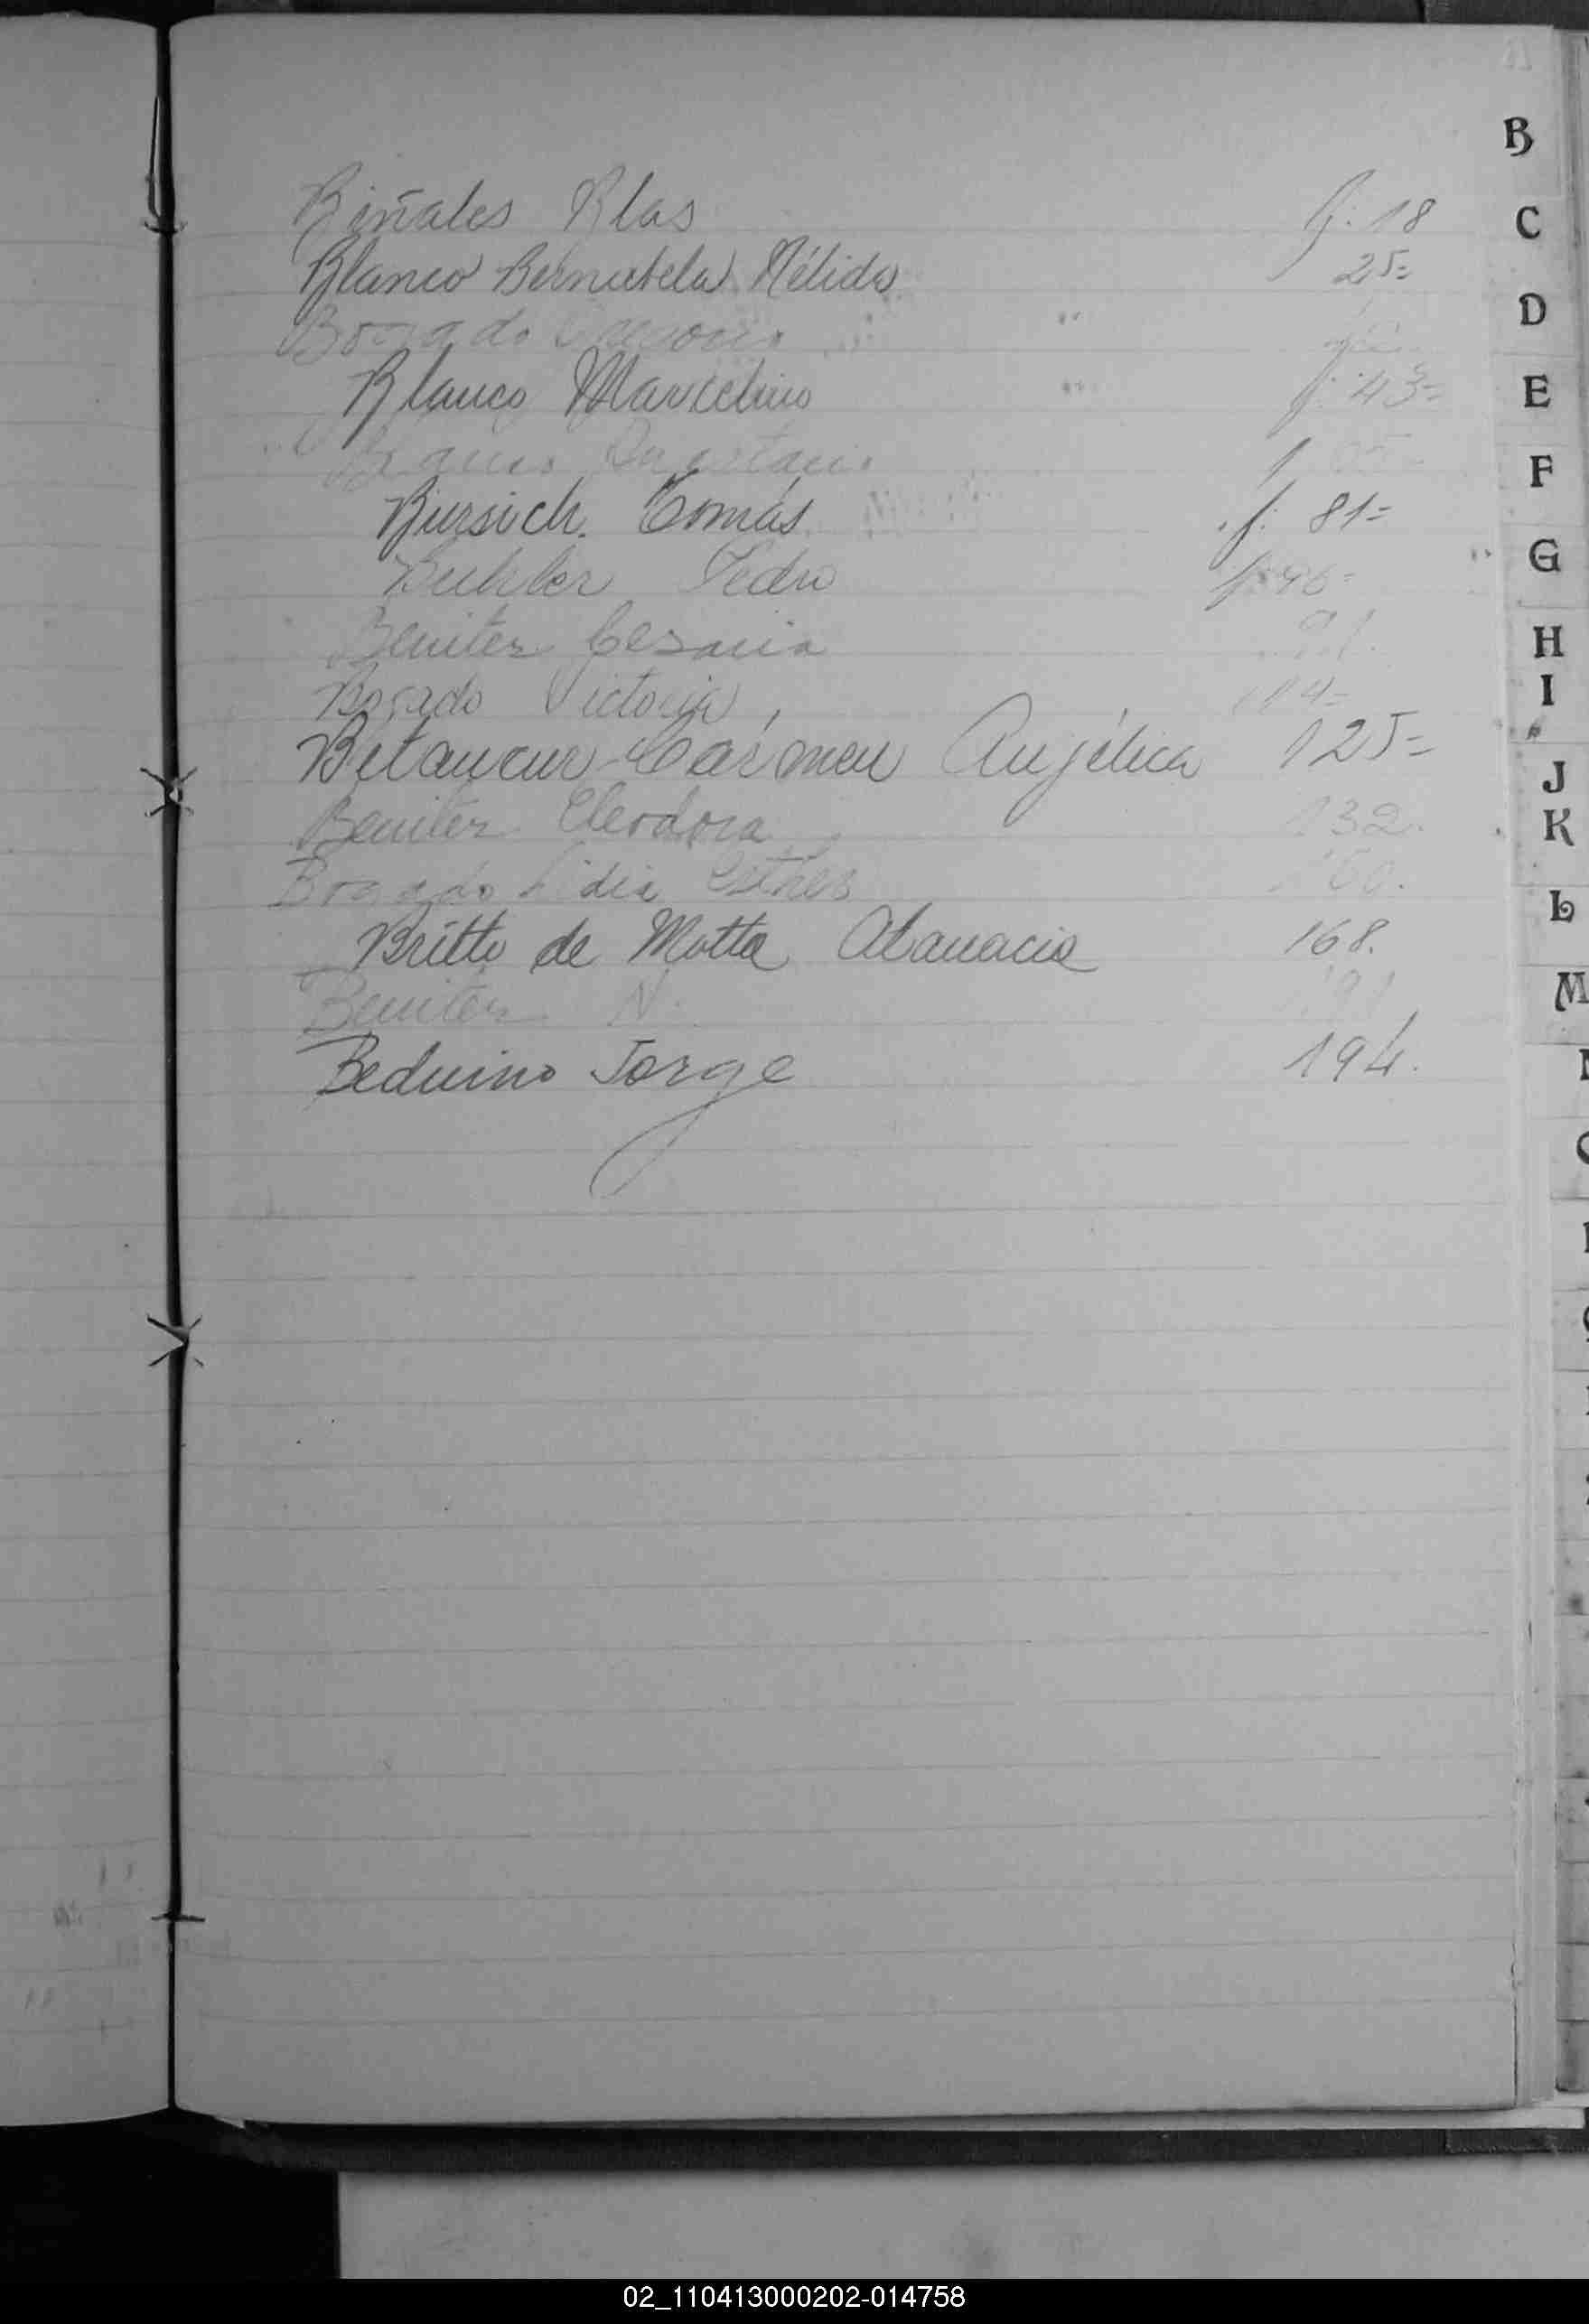 B
Biñales Blas f: 18
Blanco Bernabela Nélida 25=
Bogado
Blanco Marcelino f: 43=
Bursich. Tomás f: 81=
Buhler Pedro f: 96=
Benitez Cesaria 91.
Bogado Victoria 114=
Betancur Carmen Angélica 125=
Benitez Cleodora 132.
Bogado Lidia Esther 160.
Britto de Motta Atanacia 168.
Benitez N. 191
Beduino Jorge 194.
C
D
E
F
G
H
I
J
K
L
M
02_110413000202-014758